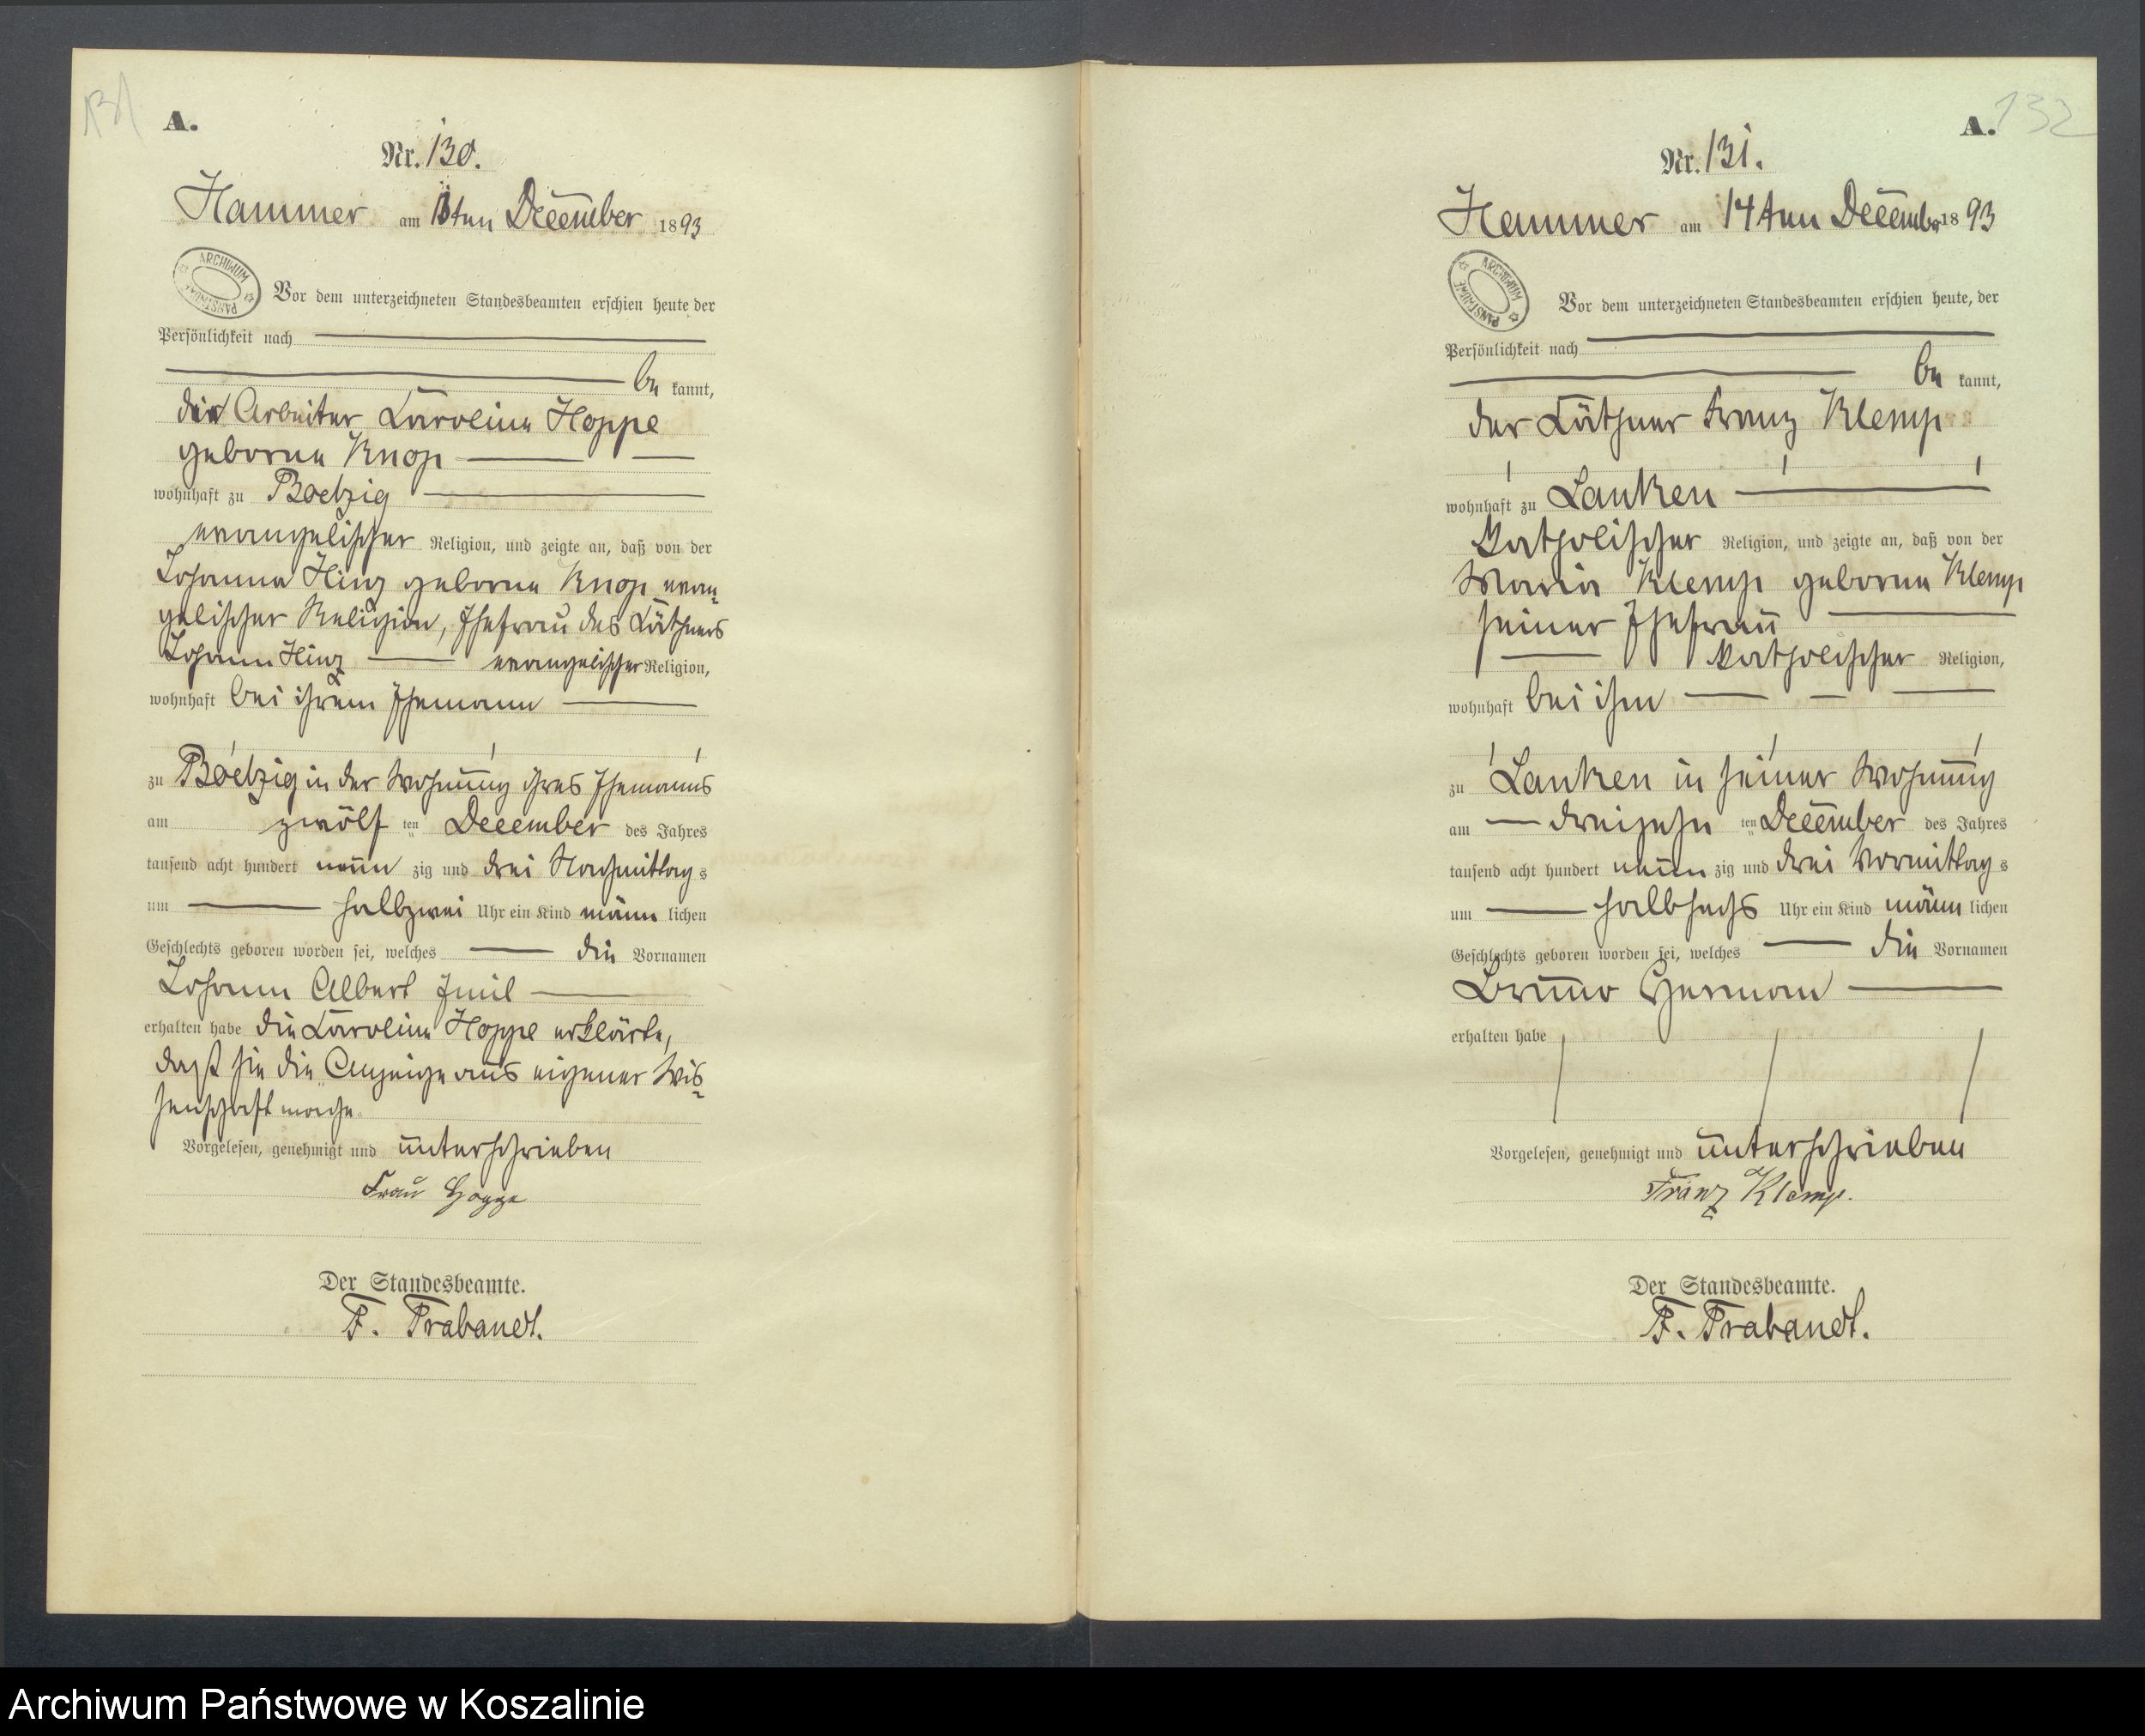 131
A.
Nr. 130.
Hammer am 13ten December 1893
ARCHIWUM PAŃSTWOWE
Vor dem unterzeichneten Standesbeamten erschien heute der
Persönlichkeit nach
be kannt,
die Arbeiter Caroline Hoppe
geborne Knop
wohnhaft zu Boelzig
evangelischer Religion, und zeigte an, daß von der
Johanna Hinz geborne Knop evan
gelischer Religion, Ehefrau des Käthners
Johann Hinz evangelischer Religion,
wohnhaft bei ihrem Ehemann
zu Boelzig in der Wohnung ihres Ehemanns
am zwölf ten December des Jahres
tausend acht hundert neun zig und drei Nachmittag s
um halbzwei Uhr ein Kind männ lichen
Geschlechts geboren worden sei, welches die Vornamen
Johann Albert Emil
erhalten habe die Caroline Hoppe erklärte,
daß sie die Anzeige aus eigener Wis
senschaft mache.
Vorgelesen, genehmigt und unterschrieben
Frau Hoppe
Der Standesbeamte.
F. Trabandt.
132
A.
Nr. 131.
Hammer am 14ten December 1893
ARCHIWUM PAŃSTWOWE
Vor dem unterzeichneten Standesbeamten erschien heute, der
Persönlichkeit nach
be kannt,
der Käthner Franz Klemp
wohnhaft zu Lanken
katholischer Religion, und zeigte an, daß von der
Maria Klemp geborne Klemp
seiner Ehefrau
katholischer Religion,
wohnhaft bei ihm
zu Lanken in seiner Wohnung
am dreizehn ten December des Jahres
tausend acht hundert neun zig und drei Vormittag s
um halbsechs Uhr ein Kind männ lichen
Geschlechts geboren worden sei, welches die Vornamen
Bruno Herman
erhalten habe
Vorgelesen, genehmigt und unterschrieben
Franz Klemp.
Der Standesbeamte.
F. Trabandt.
Archiwum Państwowe w Koszalinie